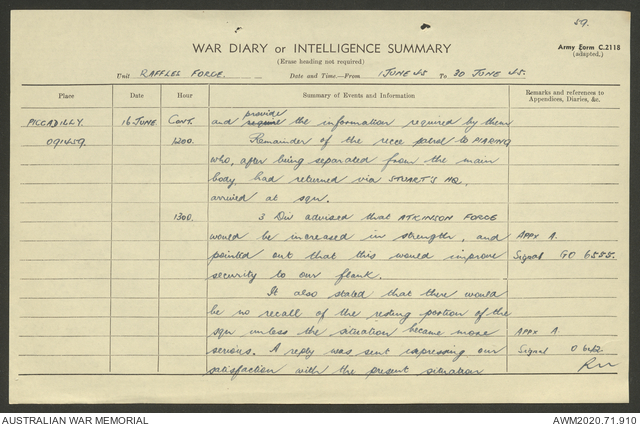 59.
WAR DIARY or INTELLIGENCE SUMMARY
(Erase heading not required)
Army Form C.2118
(adapted.)
Unit RAFFLES FORCE. Date and Time—From 1 JUNE 45 To 30 JUNE 45.
Place Date Hour Summary of Events and Information Remarks and references to Appendices, Diaries, &c.
PICCADILLY. 16 JUNE. CONT. and provide the information required by them
091459. 1200. Remainder of the recce patrol to MARINA
who, after being separated from the main
body, had returned via STUART'S HQ.
arrived at sqn.
1300. 3 Div advised that ATKINSON FORCE
would be increased in strength, and APPX A.
pointed out that this would improve Signal GO 6555.
security to our flank.
It also stated that there would
be no recall of the resting portion of the
sqn unless the situation became more APPX A
serious. A reply was sent expressing our Signal O
satisfaction with the present situation
AUSTRALIAN WAR MEMORIAL AWM2020.71.910